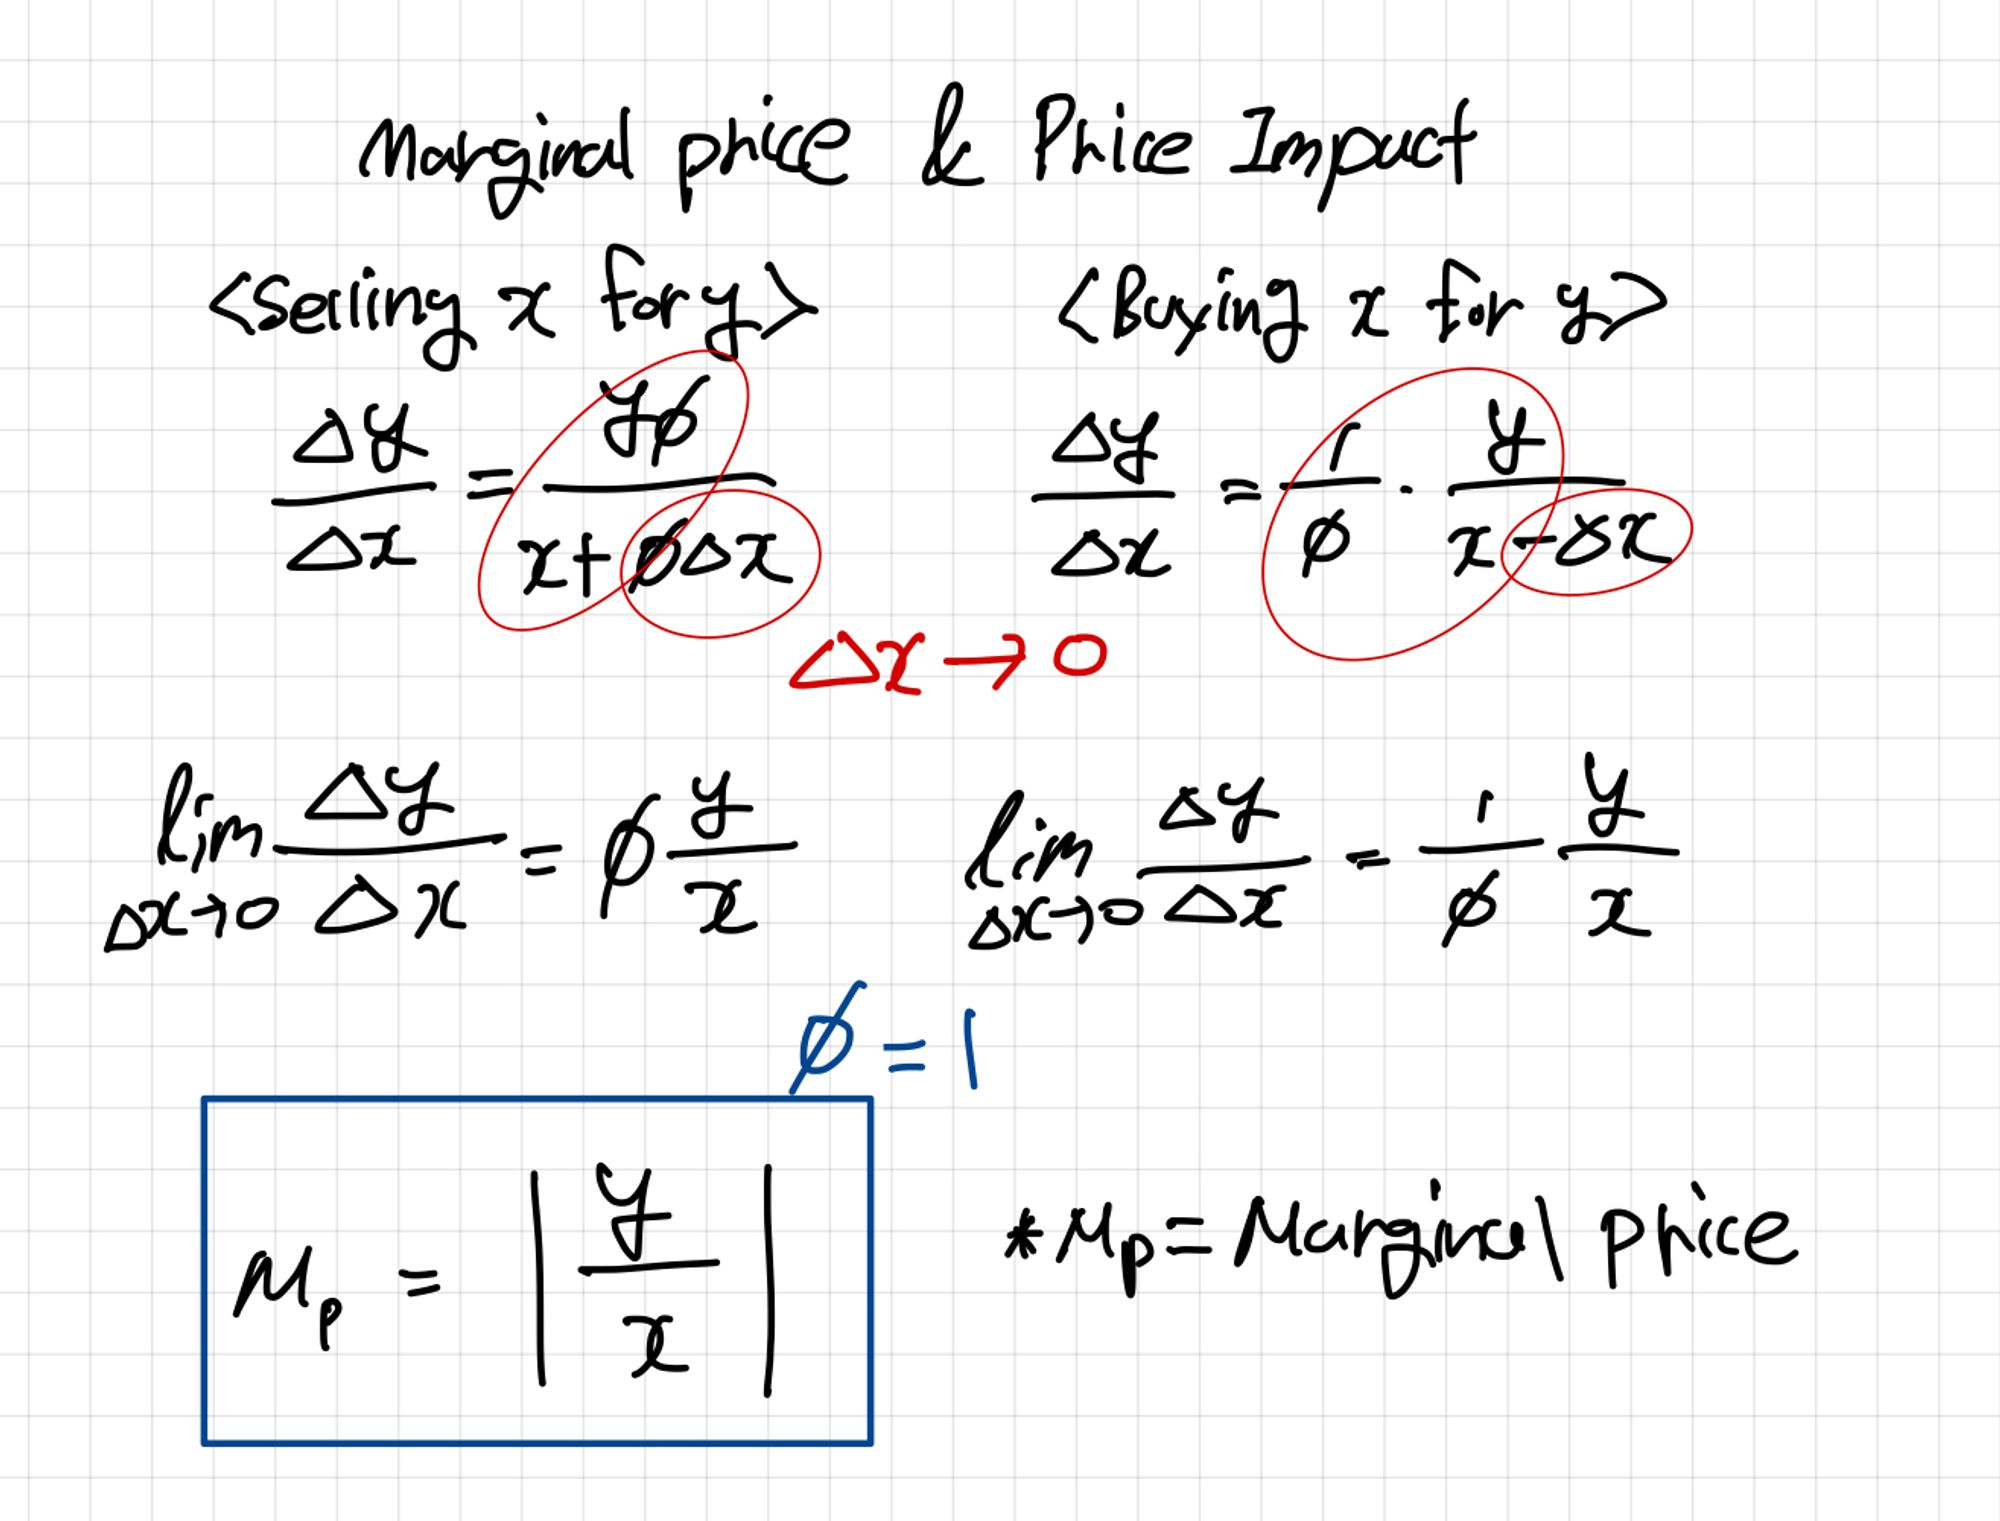 Marginal price & Price Impact
<Selling x for y>
<Buying x for y>
Δy/Δx = yφ/(x+φΔx)
Δy/Δx = 1/φ · y/(x-Δx)
Δx → 0
lim Δx→0 Δy/Δx = φ y/x
lim Δx→0 Δy/Δx = 1/φ y/x
φ = 1
Mp = |y/x|
*Mp = Marginal price